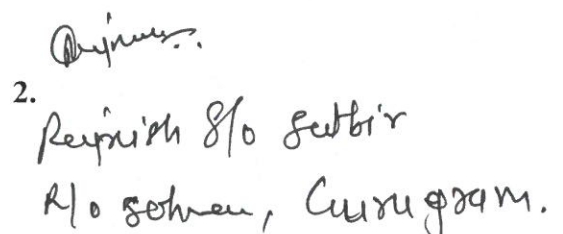 2.
Rajnish S/o Satbir
R/o Sohna, Gurugram.